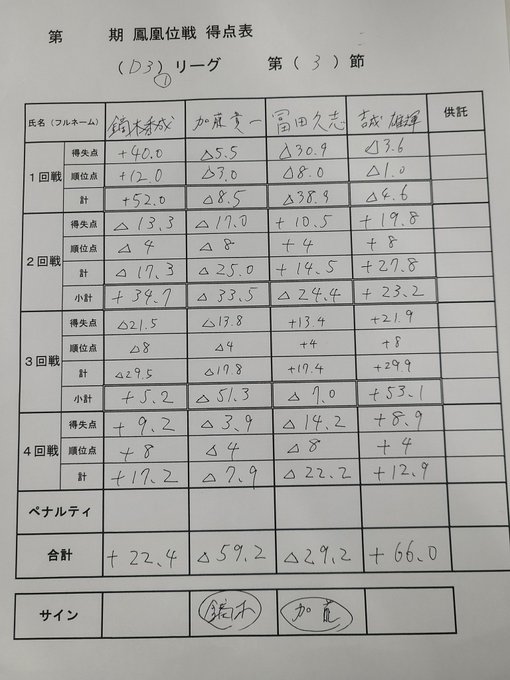 第　　期 鳳凰位戦 得点表
（D3）リーグ　第（3）節
①
氏名（フルネーム） 鏑木香成 加藤貴一 冨田久志 吉成雄輝 供託
1回戦 得失点 +40.0 △5.5 △30.9 △3.6
順位点 +12.0 △3.0 △8.0 △1.0
計 +52.0 △8.5 △38.9 △4.6
2回戦 得失点 △13.3 △17.0 +10.5 +19.8
順位点 △4 △8 +4 +8
計 △17.3 △25.0 +14.5 +27.8
小計 +34.7 △33.5 △24.4 +23.2
3回戦 得失点 △21.5 △13.8 +13.4 +21.9
順位点 △8 △4 +4 +8
計 △29.5 △17.8 +17.4 +29.9
小計 +5.2 △51.3 △7.0 +53.1
4回戦 得失点 +9.2 △3.9 △14.2 +8.9
順位点 +8 △4 △8 +4
計 +17.2 △7.9 △22.2 +12.9
ペナルティ
合計 +22.4 △59.2 △29.2 +66.0
サイン 鏑木 加藤